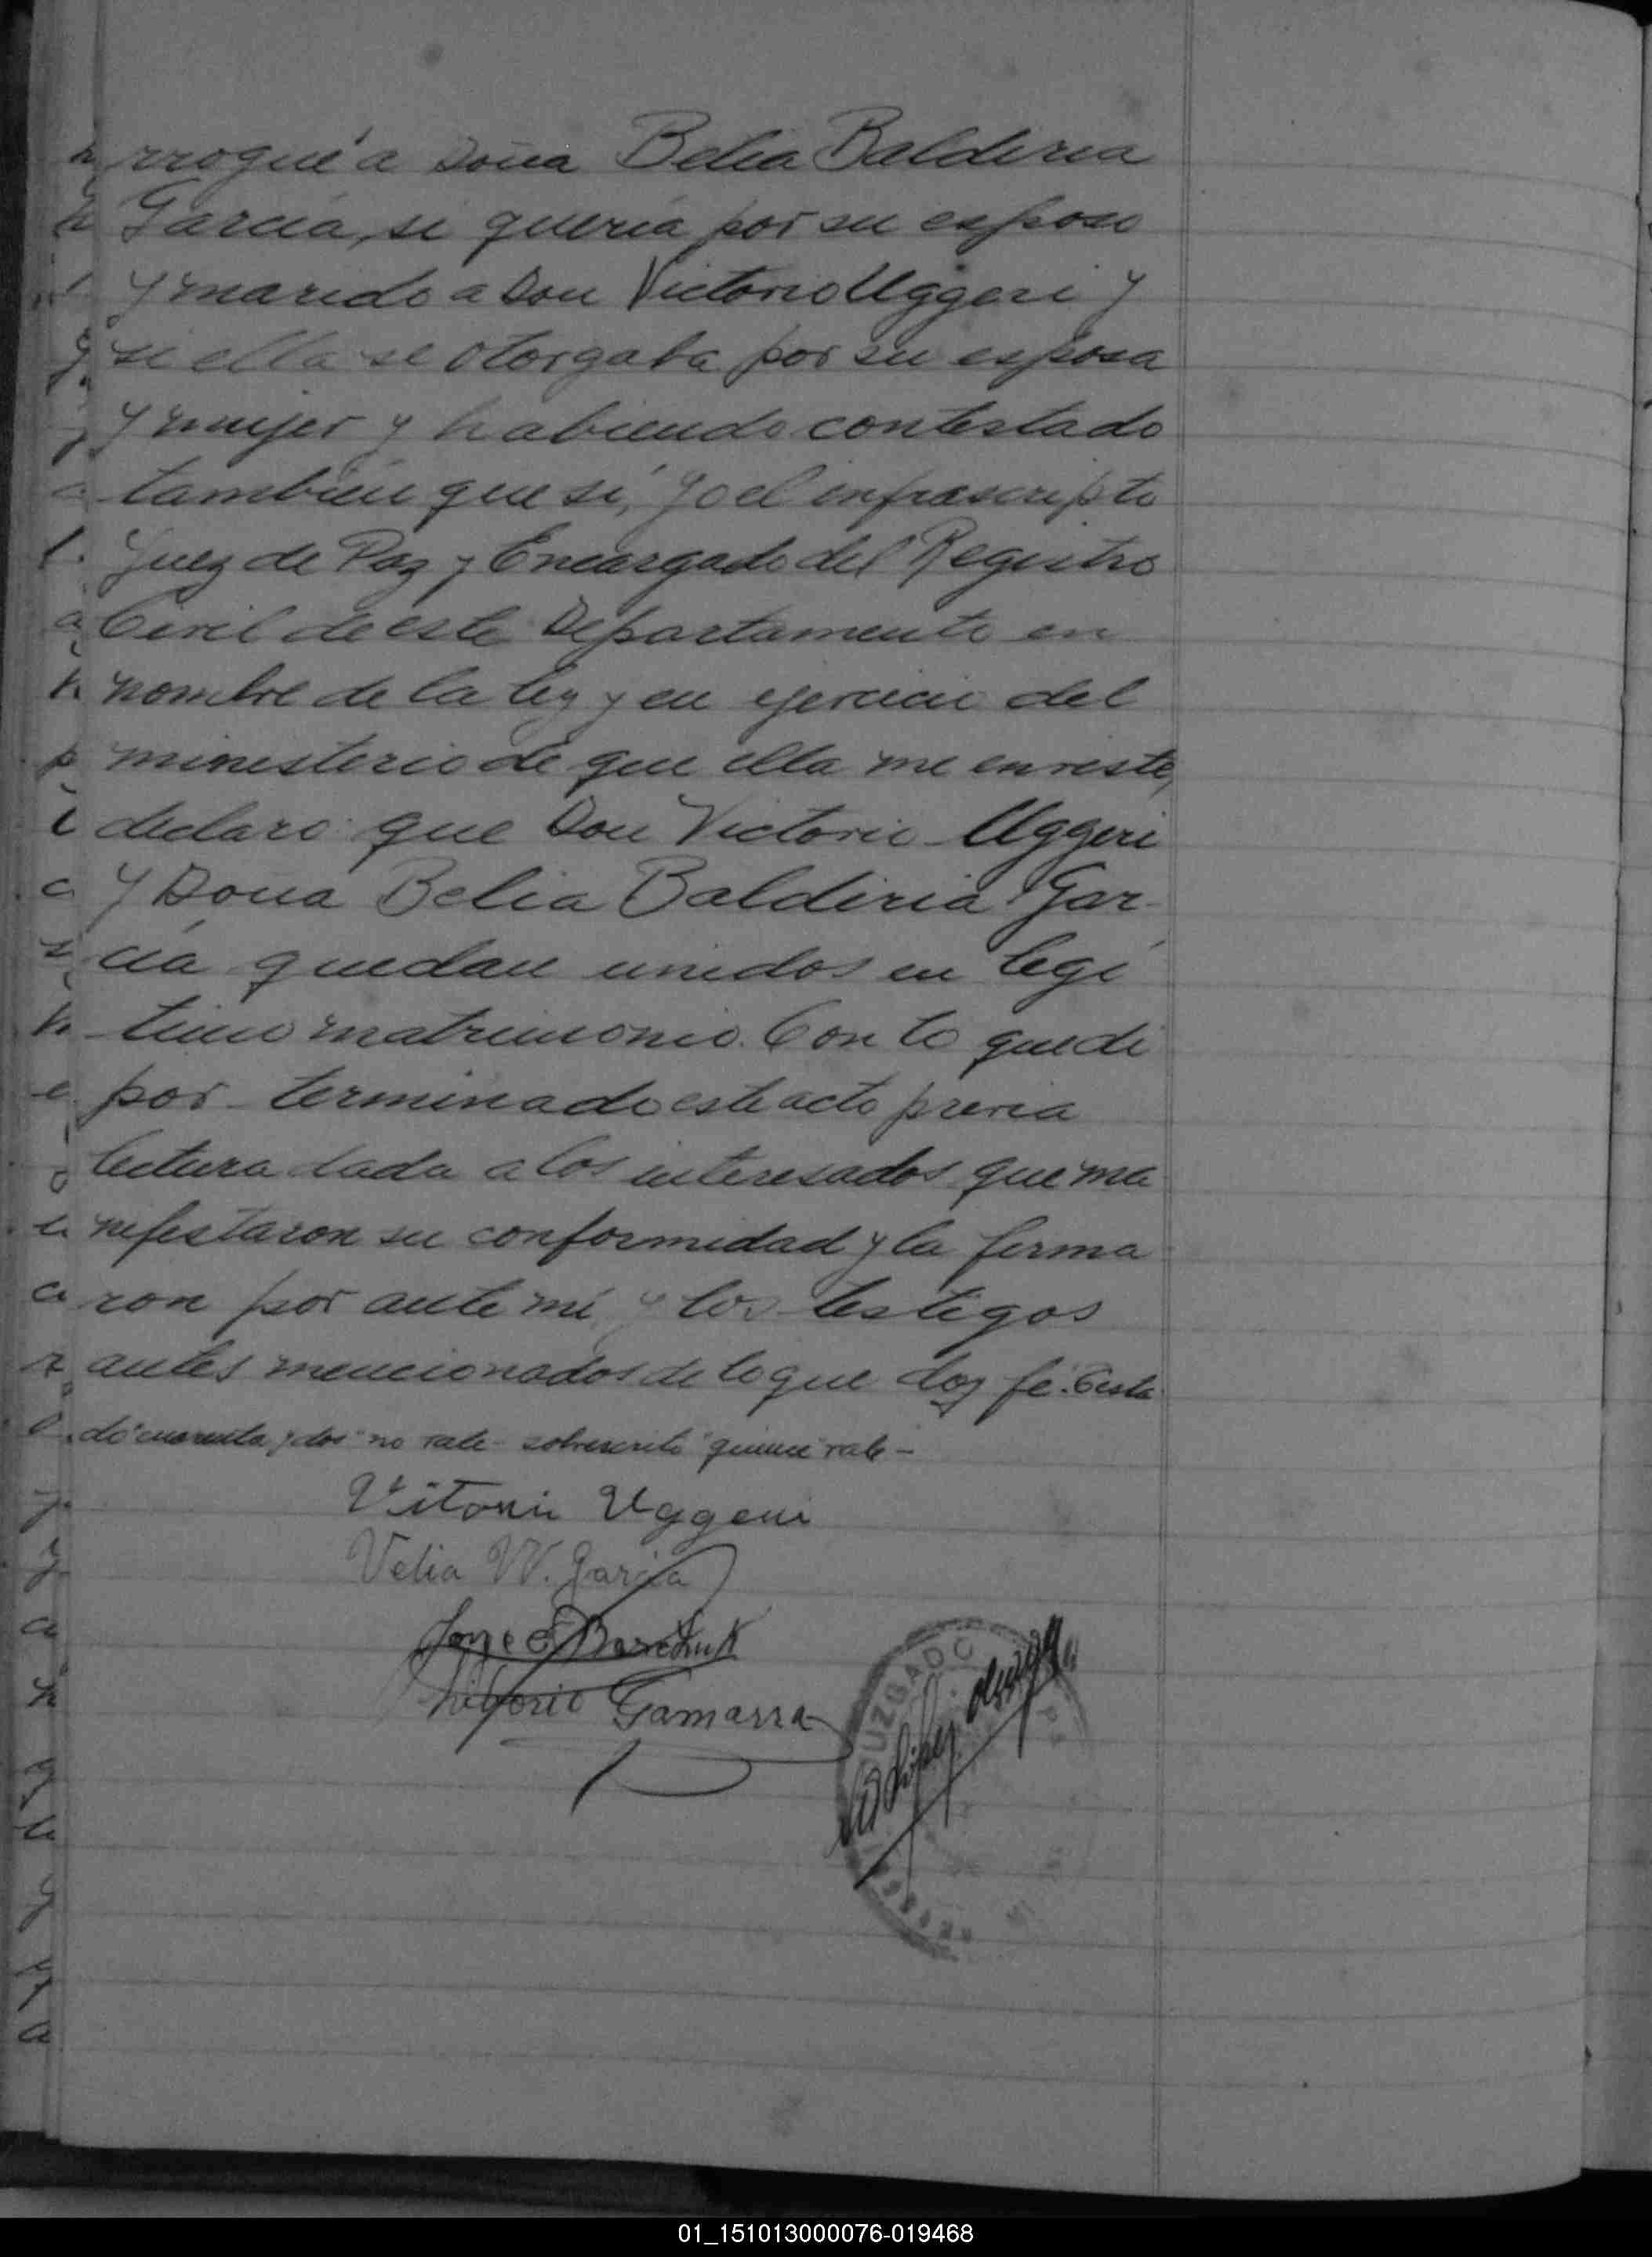 rrogué a Doña Belia Baldiria
García, si quería por su esposo
y marido a Don Victorio Uggeri y
si ella se otorgaba por su esposa
y mujer y habiendo contestado
también que sí, yo el infrascripto
Juez de Paz y Encargado del Registro
Civil de este Departamento en
nombre de la ley y en ejercicio del
ministerio de que ella me enviste,
declaro que Don Victorio Uggeri
y Doña Belia Baldiria Gar-
cía quedan unidos en legí
timo matrimonio. Con lo que di
por terminado este acto previa
lectura dada a los interesados que ma
nifestaron su conformidad y la firma
ron por ante mí y los testigos
antes mencionados de lo que doy fé. Testa
do "cuarenta y dos" no vale - sobrescrito "quince" vale -
Vitorio Uggeri
Velia W. García
Jorge
Gamarra
JUZGADO
01_151013000076-019468